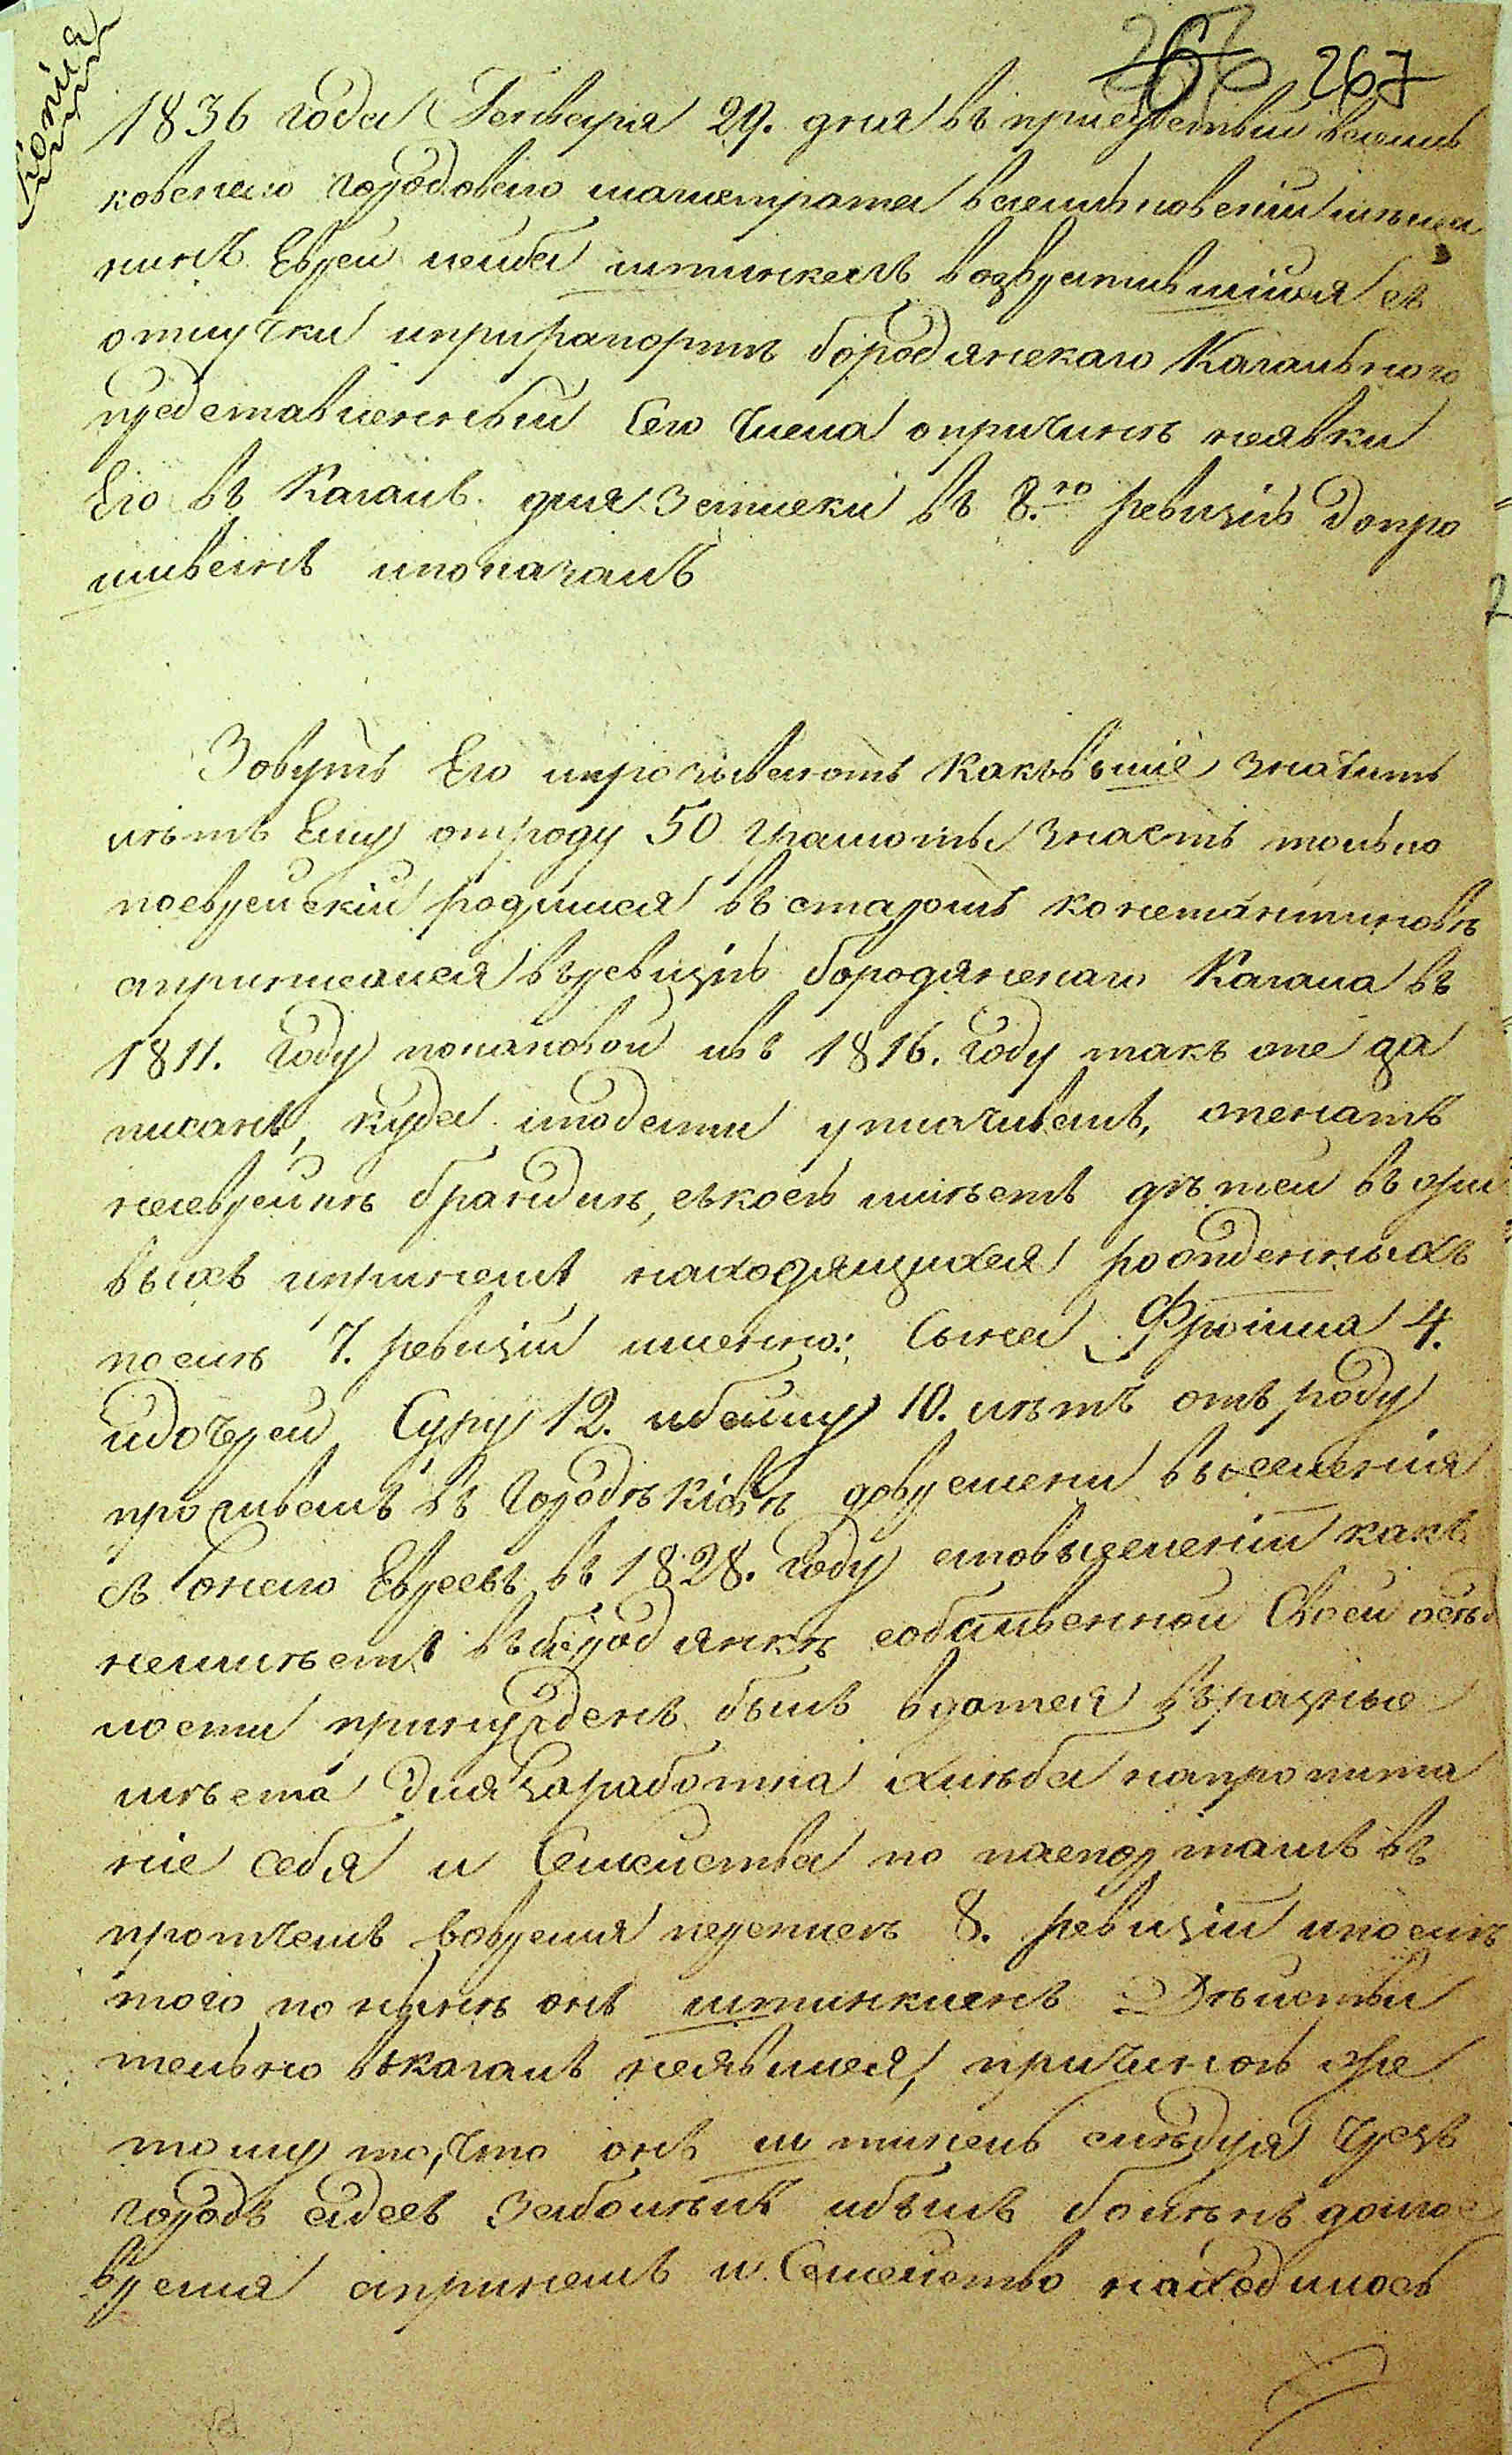 Копія
266 267
1836 года Генваря 29. дня въ присудствіи василь
ковскаго городоваго магистрата васильковскій меща
нинъ Еврей лейба штинкель возвратившійся съ
отлучки ипри рапортѣ бородянскаго Кагальнаго
представленный Сего Числа опричинѣ неявки
Его въ Кагалъ для Записки въ 8.ю ревизію допро
шиванъ ипоказалъ
Зовутъ Его ипрозываютъ какъвыше значитъ
лѣтъ Ему отроду 50 грамоты знаетъ только
поеврейский родился въ старомъ константиновѣ
априписался въревизію бородянскаго Кагала въ
1811. году покаковой ивъ 1816. году такъ оне за
писанъ, куда иподати уплачивалъ, оженатъ
наеврейкѣ брандлѣ, съкоей имѣетъ дѣтей въ жи
выхъ ипринемъ находящихся рожденныхъ
послѣ 7. ревизіи именно: Сына Фроима 4.
идочерей Суру 12. ибейлу 10. лѣтъ отъ роду
проживалъ въ городѣ кіевѣ довремени выселенія
съ онаго Евреевъ въ 1828. году аповыселеніи какъ
неимѣетъ въбородянкѣ собственной Своей осѣд
лости принужденъ былъ вдатся въразные
мѣста для заработка хлѣба напропита
ніе себя и Семейства по паспортамъ въ
протчемъ вовремя переписѣ 8. ревизіи ипослѣ
того понынѣ онъ штинкилъ Дѣйстви
тельно въкагалъ неявился, причиною же
тому то, что онъ штинкель слѣдуя чрезъ
городъ одесъ Заболѣлъ ибылъ боленъ долгое
время апринемъ и Семейство находилось